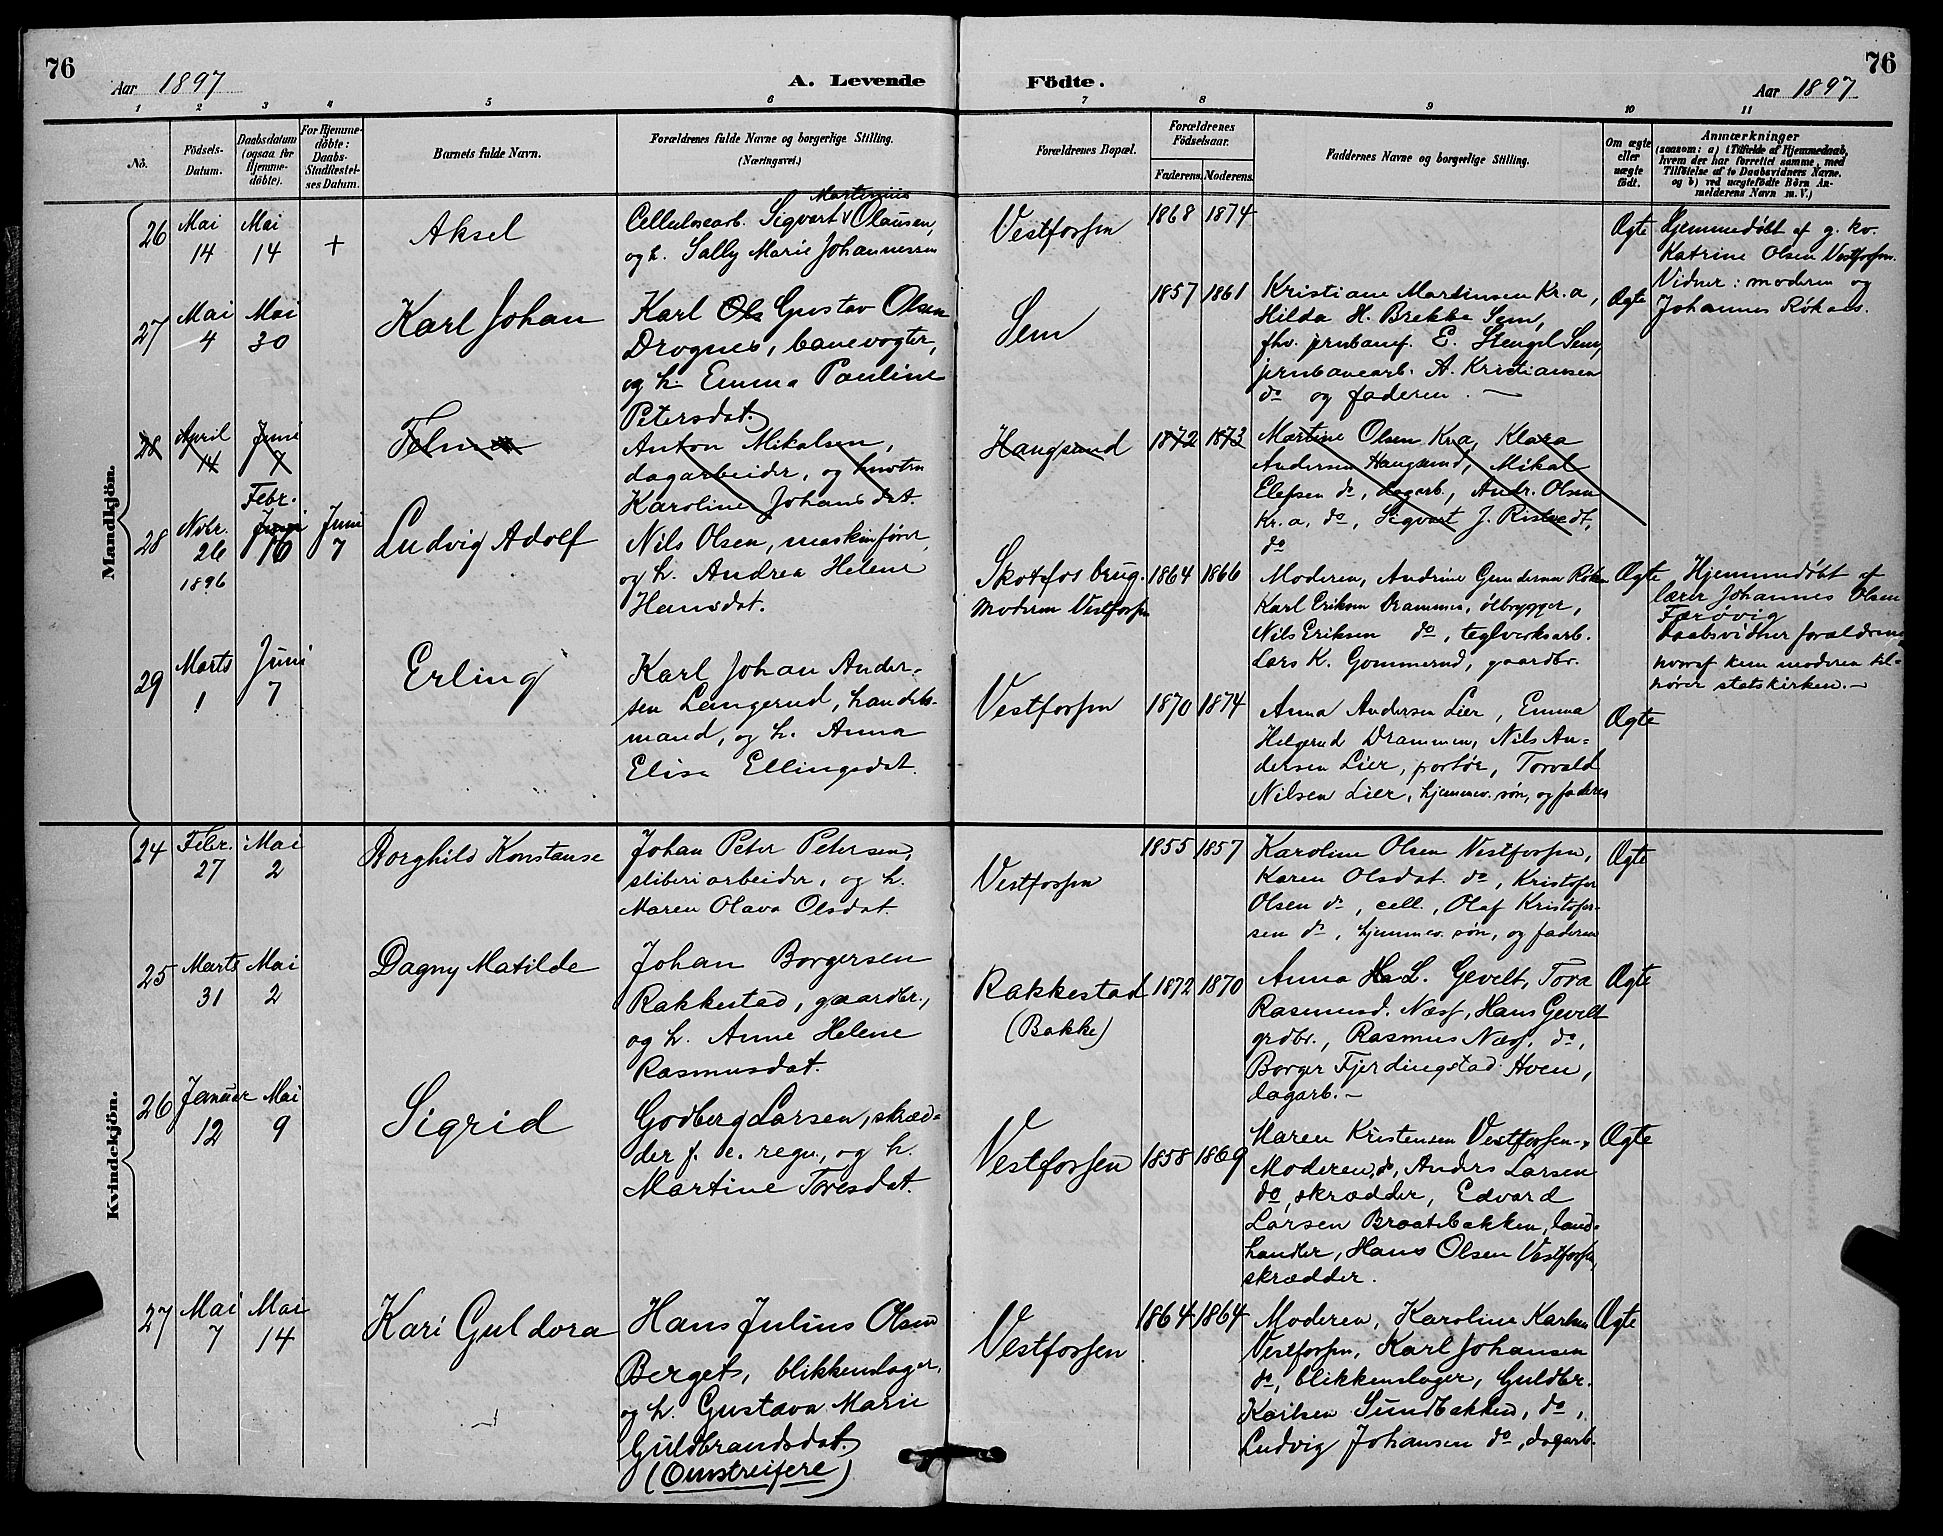 76
Aar 1897
A. Levende
Födte.
76
Aar 1897
1 2 3 4 5 6 7 8 9 10 11
No.
Födsels-
Datum.
Daabsdatum
(ogsaa for
Hjemme-
døbte).
For Hjemme-
døbte:
Daabs-
Stadfæstel-
ses Datum.
Barnets fulde Navn.
Forældrenes fulde Navne og borgerlige Stilling.
(Næringsvei.)
Forældrenes Bopæl.
Forældrenes
Födselsaar.
Faderens. Moderens.
Faddernes Navne og borgerlige Stilling.
Om ægte
eller
uægte
födt.
Anmærkninger
(saasom: a) i Tilfælde af Hjemmedaab,
hvem der har forrettet samme, med
Tilföielse af to Daabsvidners Navne.
og b) ved uægtefödte Börn An-
melderens Navn m. V.)
Mandkjön.
26
Mai
14
Mai
14
+
Aksel
Martinius
Cellulosearb. Sigvart Olausen,
og h. Sally Marie Johannessen
Vestfossen
1868 1874
Ægte
Hjemmedøbt af g. ko.
Katrine Olsen Vestfossen.
Vidner: moderen og
Johannes Røkaas.
27
Mai
4
Mai
30
Karl Johan
Karl Ols Gustav Olsen
Drognes, banevogter,
og h. Emma Pauline
Petersdat.
Sem
1857 1861
Kristiane Martinsen Kr.a,
Hilda H. Brekke Sem,
fhv. jrnbanef. E. Stengel Sem,
jrnbanearb. A. Kristiansen
do og faderen.
Ægte
28
April
14
Juni
7
Telma
Anton Mikalsen,
dagarbeider, og hustru
Karoline Johansdat.
Haugsund
1872 1873
Martine Olsen Kr.a, Klara
Andersen Haugsund, Mikal
Elefsen do, dagarb., Andr. Olsen
Kr.a, do, Sigvart J. Ristvedt,
do
28
Nvbr.
26
1896
Febr.
Juni
16
Juni
7
Ludvig Adolf
Nils Olsen, maskinfører,
og h. Andrea Helene
Hansdat.
Skotfos brug.
moderen Vestfossen
1864 1866
Moderen, Andrine Gundersen Røken
Karl Eriksen Drammen, ølbrygger,
Nils Eriksen do, teglverksarb.
Lars K. Gommerud, gaardbr.
Ægte
Hjemmedøbt af
lærer Johannes Olsen
Færøvig
Daabsvidner forældrene
hvoraf kun moderen til-
hører statskirken.-
29
Marts
1
Juni
7
Erling
Karl Johan Ander-
sen Langerud, handels-
mand, og h. Anna
Elise Ellingsdat.
Vestfossen
1870 1874
Anna Andersen Lier, Emma
Helgerud Drammen, Nils An-
dersen Lier, portør, Torvald
Nilsen Lier, hjemmev. søn, og faderen
Ægte
Kvindekjön.
24
Febr.
27
Mai
2
Borghild Konstanse
Johan Peter Petersen,
sliberiarbeider, og h.
Maren Olava Olsdat.
Vestfossen
1855 1857
Karoline Olsen Vestfossen,
Karen Olsdat. do, Kristofer
Olsen do, cell., Olaf Kristofer-
sen do, hjemmev. søn, og faderen
Ægte
25
Marts
31
Mai
2
Dagny Matilde
Johan Borgersen
Rakkestad, gaardbr.,
og h. Anne Helene
Rasmusdat.
Rakkestad
(Bakke)
1872 1870
Anna L. Gevelt, Tora
Rasmusd. Næss, Hans Gevelt
grdbr., Rasmus Næss, do,
Borger Fjerdingstad Hoen,
dagarb.-
Ægte
26
Januar
12
Mai
9
Sigrid
Godberg Larsen, skræd-
der f. e. regn., og h.
Martine Toresdat.
Vestfossen
1858 1869
Maren Kristensen Vestfossen,
Moderen, do, Anders Larsen
do, skrædder, Edvard
Larsen Braatebakken, land-
handler, Hans Olsen Vestfossen,
skrædder.
Ægte
27
Mai
7
Mai
14
Kari Guldora
Hans Julius Olsen
Berget, blikkenslager,
og h. Gustava Marie
Guldbrandsdat.
(Omstreifere)
Vestfossen
1864 1864
Moderen, Karoline Karlsen
Vestfossen, Karl Johansen
do, blikkenslager, Guldbr.
Karlsen Sundbakken, do,
Ludvig Johansen do, dagarb.
Ægte